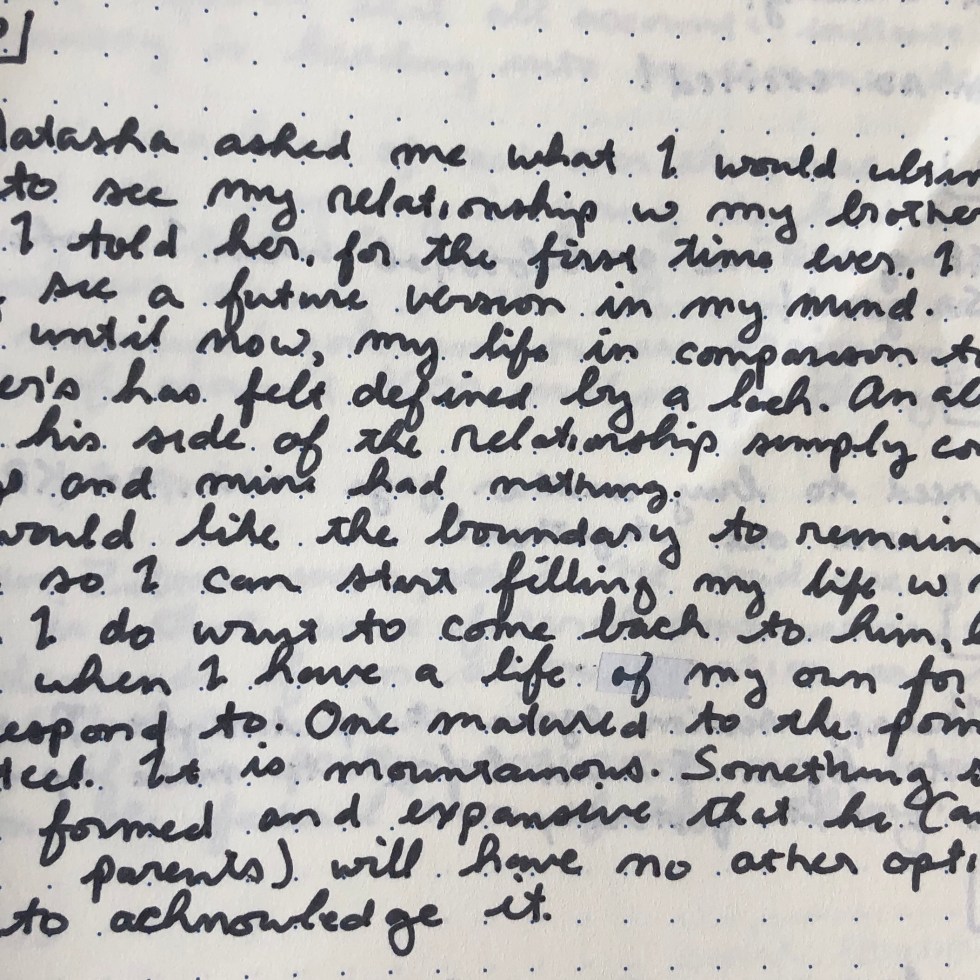 Natasha asked me what I would
to see my relationship w my brother
I told her, for the first time ever, I
see a future version in my mind.
until now, my life in comparison to
er's has felt defined by a lack. An
his side of the relationship simply
and mine had nothing.
would like the boundary to remain
so I can start filling my life w
I do want to come back to him,
when I have a life of my own for
respond to. One matured to the
It is mountainous. Something
formed and expansive that he (
parents) will have no other
to acknowledge it.